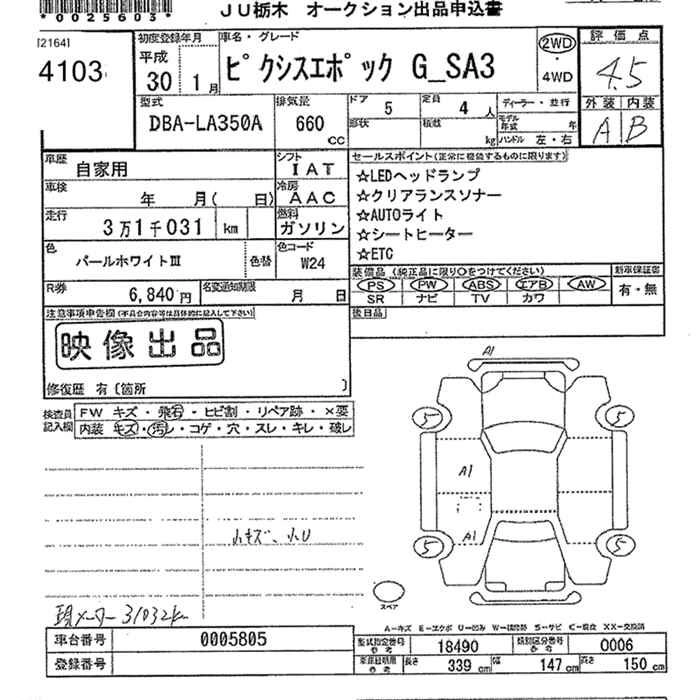 *0025603*
JU栃木 オークション出品申込書
[2164]
4103
初度登録年月
平成
30年 1月
車名・グレード
ピクシスエポック G_SA3
2WD
・
4WD
評価点
4.5
外装 内装
A B
型式
DBA-LA350A
排気量
660
CC
ドア 5
形状
定員 4 人
積載 kg
ディーラー・並行
モデル年式 年
ハンドル 左・右
車歴
自家用
シフト
IAT
車検
年 月( 日)
冷房
AAC
走行
3万1千031 km
燃料
ガソリン
色
パールホワイトⅢ
色替
色コード
W24
R券
6,840円
名変通知期限
月 日
セールスポイント(正常に機能するものに限ります)
☆LEDヘッドランプ
☆クリアランスソナー
☆AUTOライト
☆シートヒーター
☆ETC
装備品(純正品に限り○をつけてください)
新車保証書
PS PW ABS エアB AW
SR ナビ TV カワ
有・無
後日品
注意事項申告欄(不具合内容等は具体的に記入して下さい)
映像出品
修復歴 有(箇所 )
検査員
記入欄
FW キズ・飛石・ヒビ割・リペア跡・×要
内装 キズ・汚レ・コゲ・穴・スレ・キレ・破レ
小キズ、小U
現メーター 31032km
A1
5
5
A1
A1
5
5
スペア
A-キズ E-エクボ U-凹み W-補修跡 S-サビ C-腐食 XX-交換済
車台番号
0005805
登録番号
型式指定番号
参考
18490
類別区分番号
参考
0006
車庫証明用
参考
長さ 339 cm
幅 147 cm
高さ 150 cm